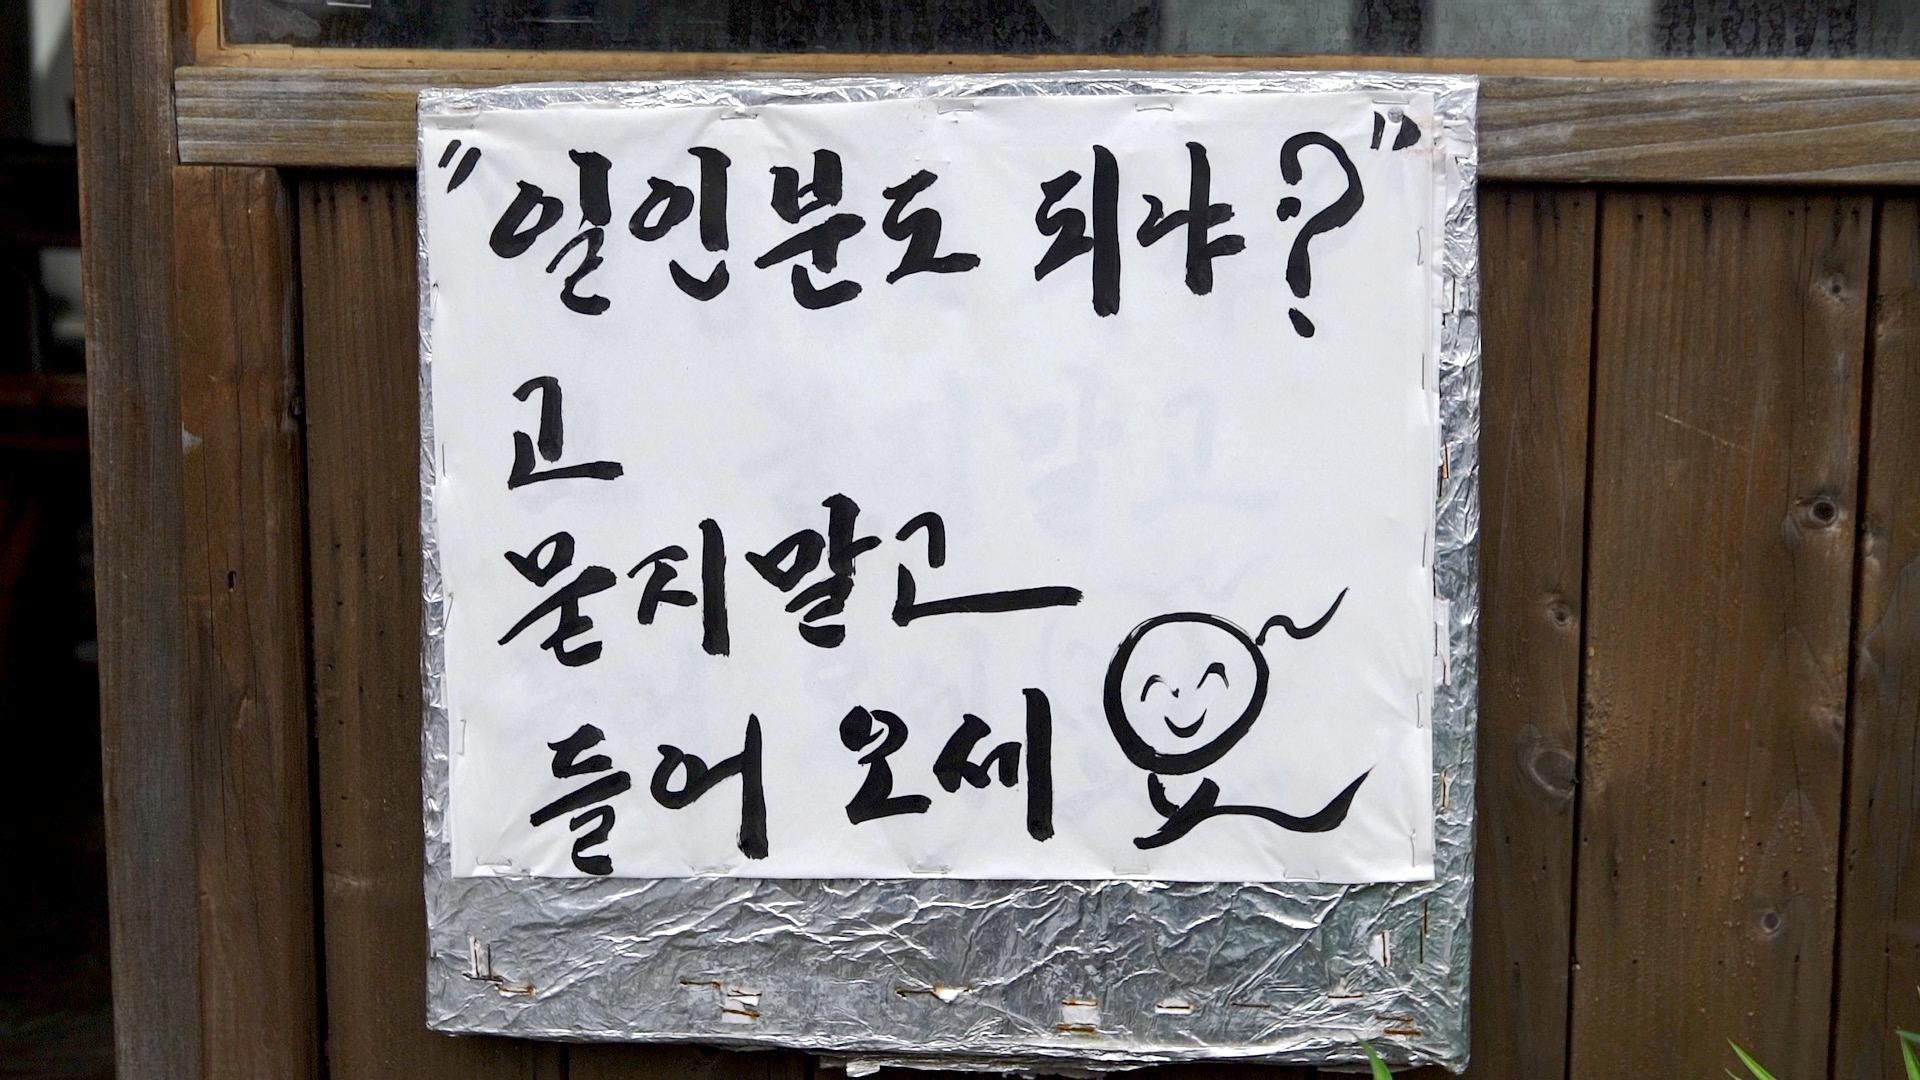 "일인분도 되냐?"
고
묻지말고
들어 오세요